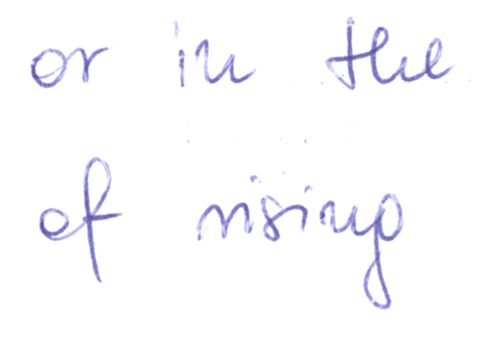 or in the
of rising